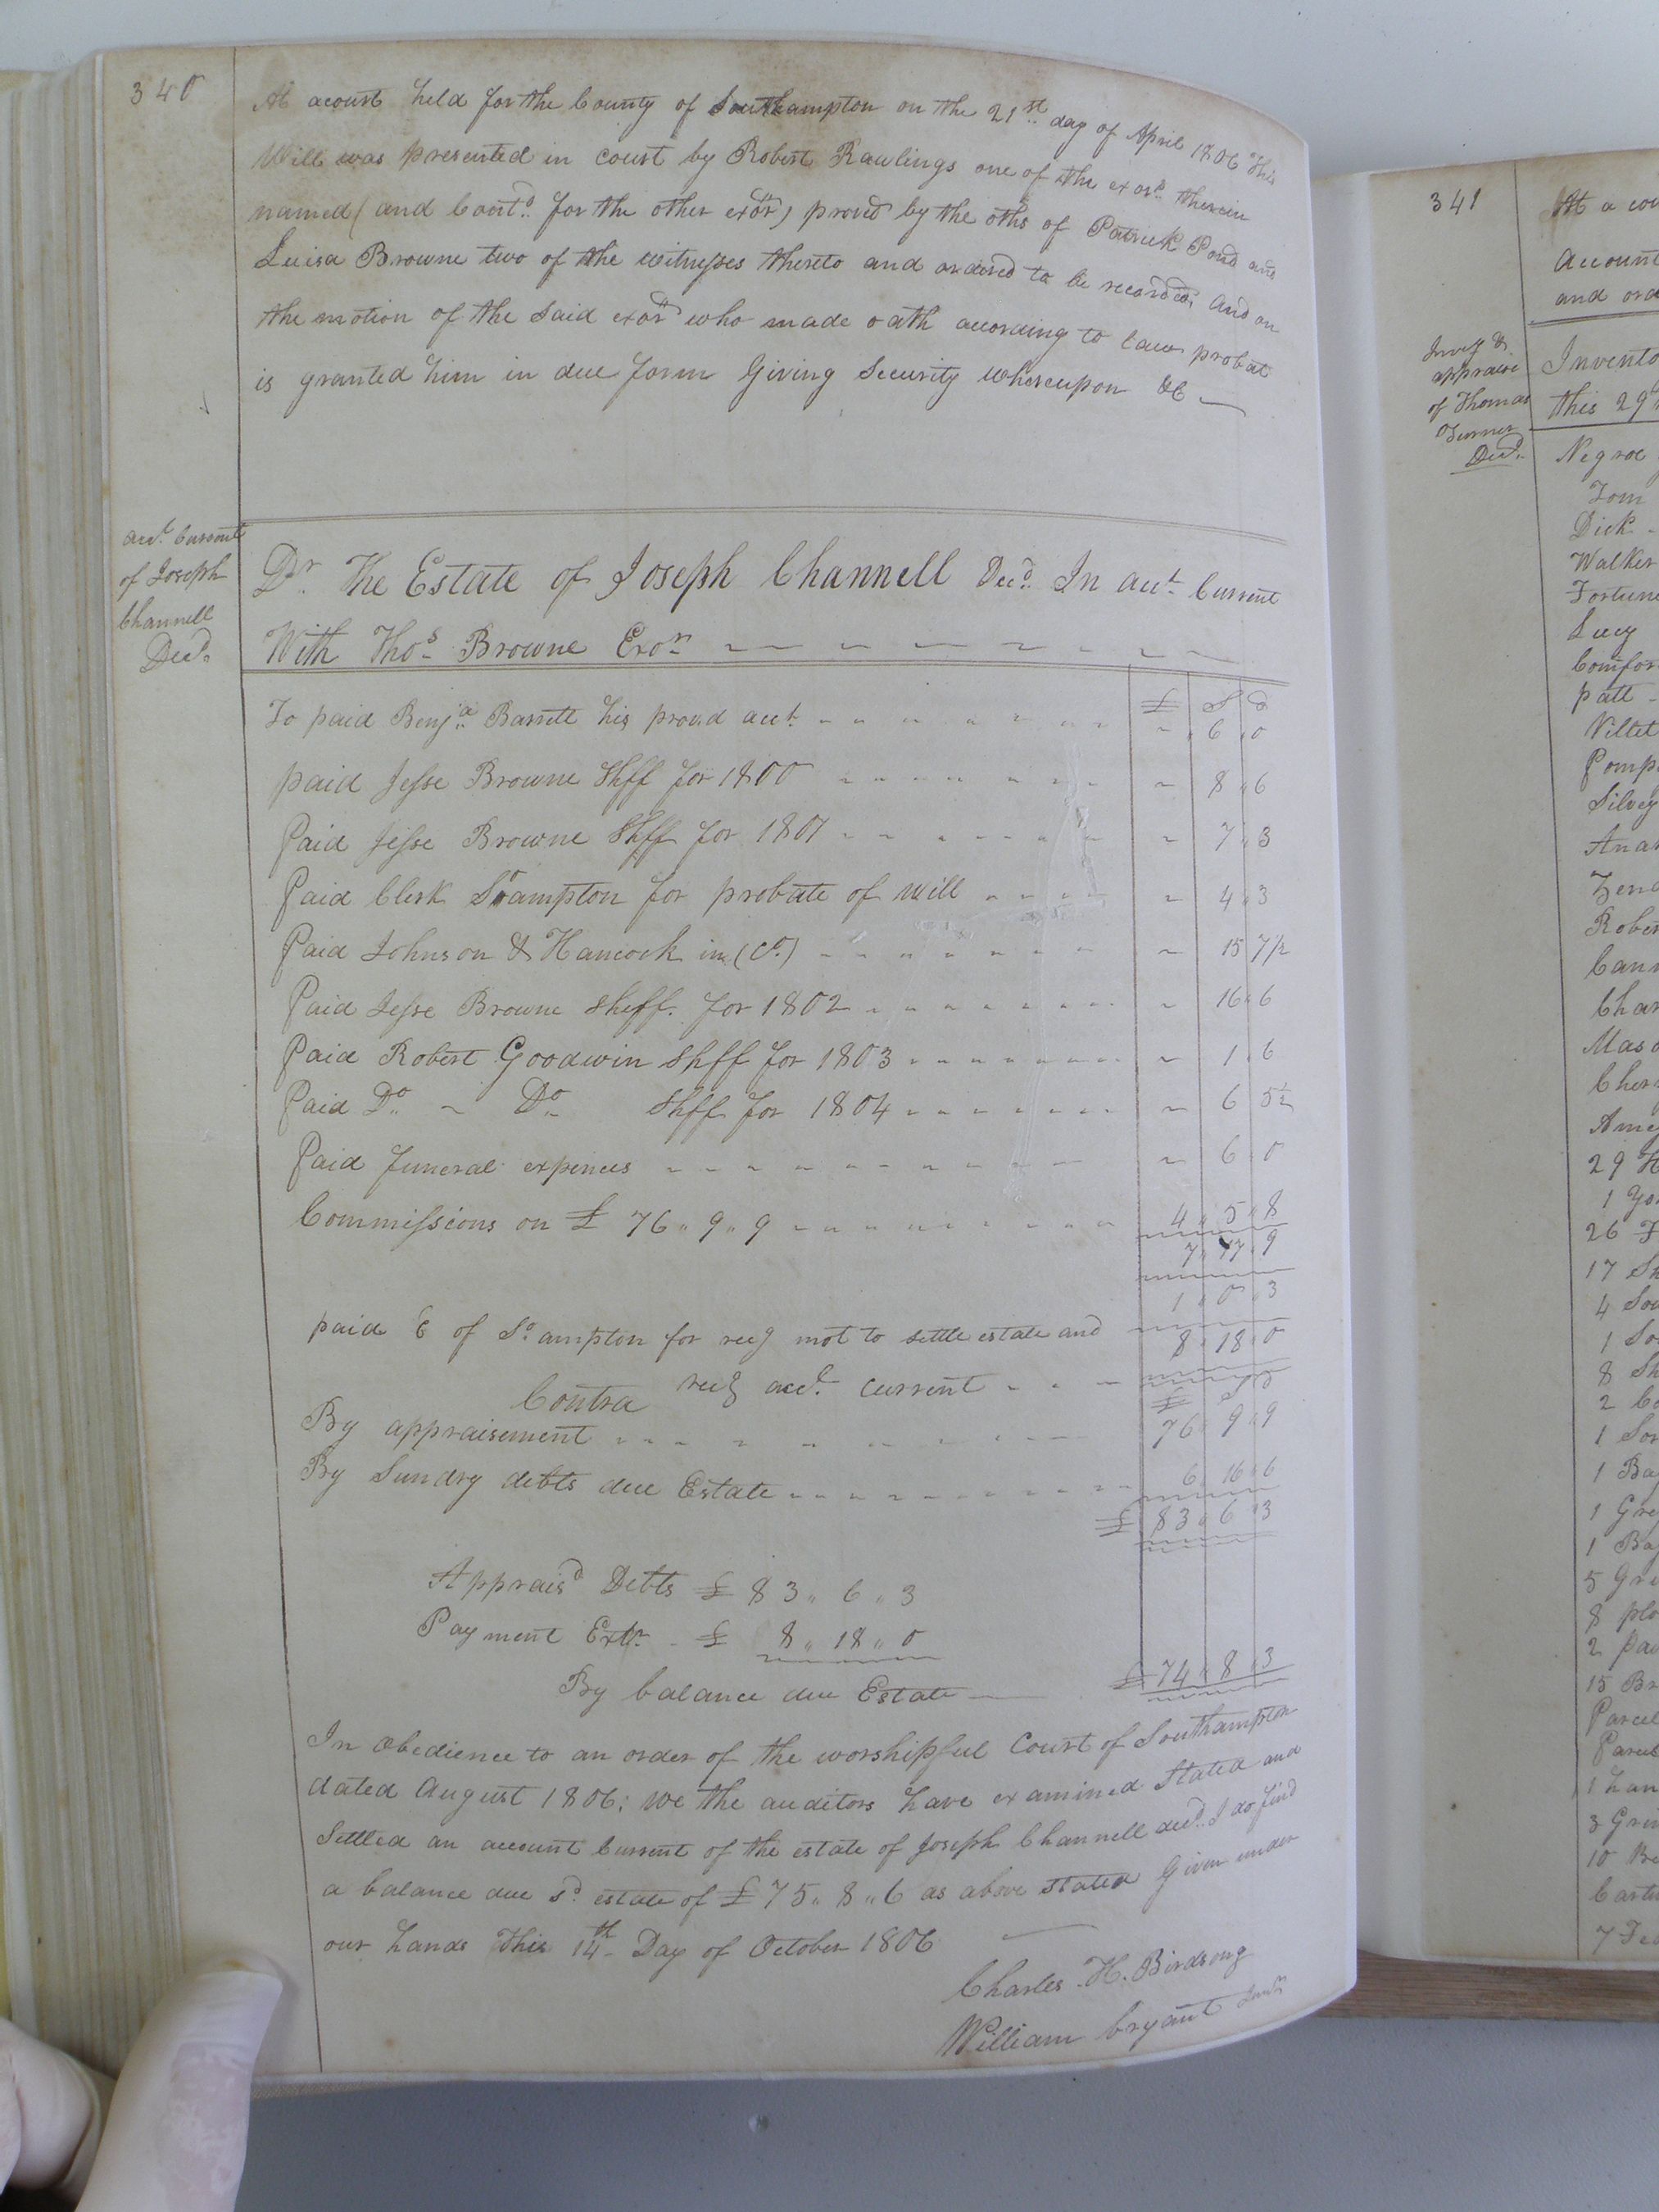 340
At acourt held for the County of Southampton on the 21st day of April 1806 This
Will was presented in court by Robert Rawlings one of the exors therein
named (and Contd. for the other exor) proved by the oths of Patrick Pond and
Luisa Browne two of the witnesses thereto and ordered to be recorded; And on
the motion of the said exor who made oath according to law probat
is granted him in due form Giving Security whereupon &c
acct. Current
of Joseph
Channell
Decd.
Dr. The Estate of Joseph Channell Decd. In acct. Current
With Thos. Browne Exor.
£ S d
To paid Benja. Barrett his proved acct. 6 0
paid Jesse Browne Shff for 1800 8 6
Paid Jesse Browne Shff for 1801 7 3
Paid Clerk Soampton for probate of will 4 3
Paid Johnson & Hancock in (Co.) 15 7 1/2
Paid Jesse Browne sheff. for 1802 16 6
Paid Robert Goodwin Shff for 1803 1 6
Paid Do. Do. Shff for 1804 6 5 1/2
Paid funeral expences 6 0
Commissions on £ 76 9 9 4 5 8
7 17 9
1 0 3
paid C of So.ampton for recg mot to settle estate and
8 18 0
recg acct. current
Contra £ S d
By appraisement 76 9 9
By Sundry debts due Estate 6 16 6
£ 83 6 3
Apprais'd Debts £ 83 6 3
Payment Exr. £ 8 18 0
By balance due Estate £ 74 8 3
In obedience to an order of the worshipful Court of Southampton
dated August 1806; we the auditors have examined Stated and
Settled an account Current of the estate of Joseph Channell decd. I do find
a balance due sd. estate of £ 75 8 6 as above stated Given under
our hands this 14th Day of October 1806
Charles H. Birdsong
William bryant Junr.
341
At a cou
Account
and ord
Invy &
appraise
of Thomas
Turner
Decd.
Invento
this 29
Negroe
Tom
Dick
Walker
Fortune
Lucy
Comfor
patt
Pomp
Silvey
Rober
Char
Maso
Cher
Amey
29 H
1 Yo
26 F
17 Sh
4 Sow
1 So
8 Sh
2 Co
1 Sor
1 Ba
1 Grey
1 Bay
5 Gri
8 plo
2 pai
15 Br
Parcel
Parcel
3 Grin
10 Be
Carte